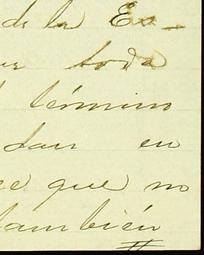 de la Es-
toda
término
dan en
ce que no
también